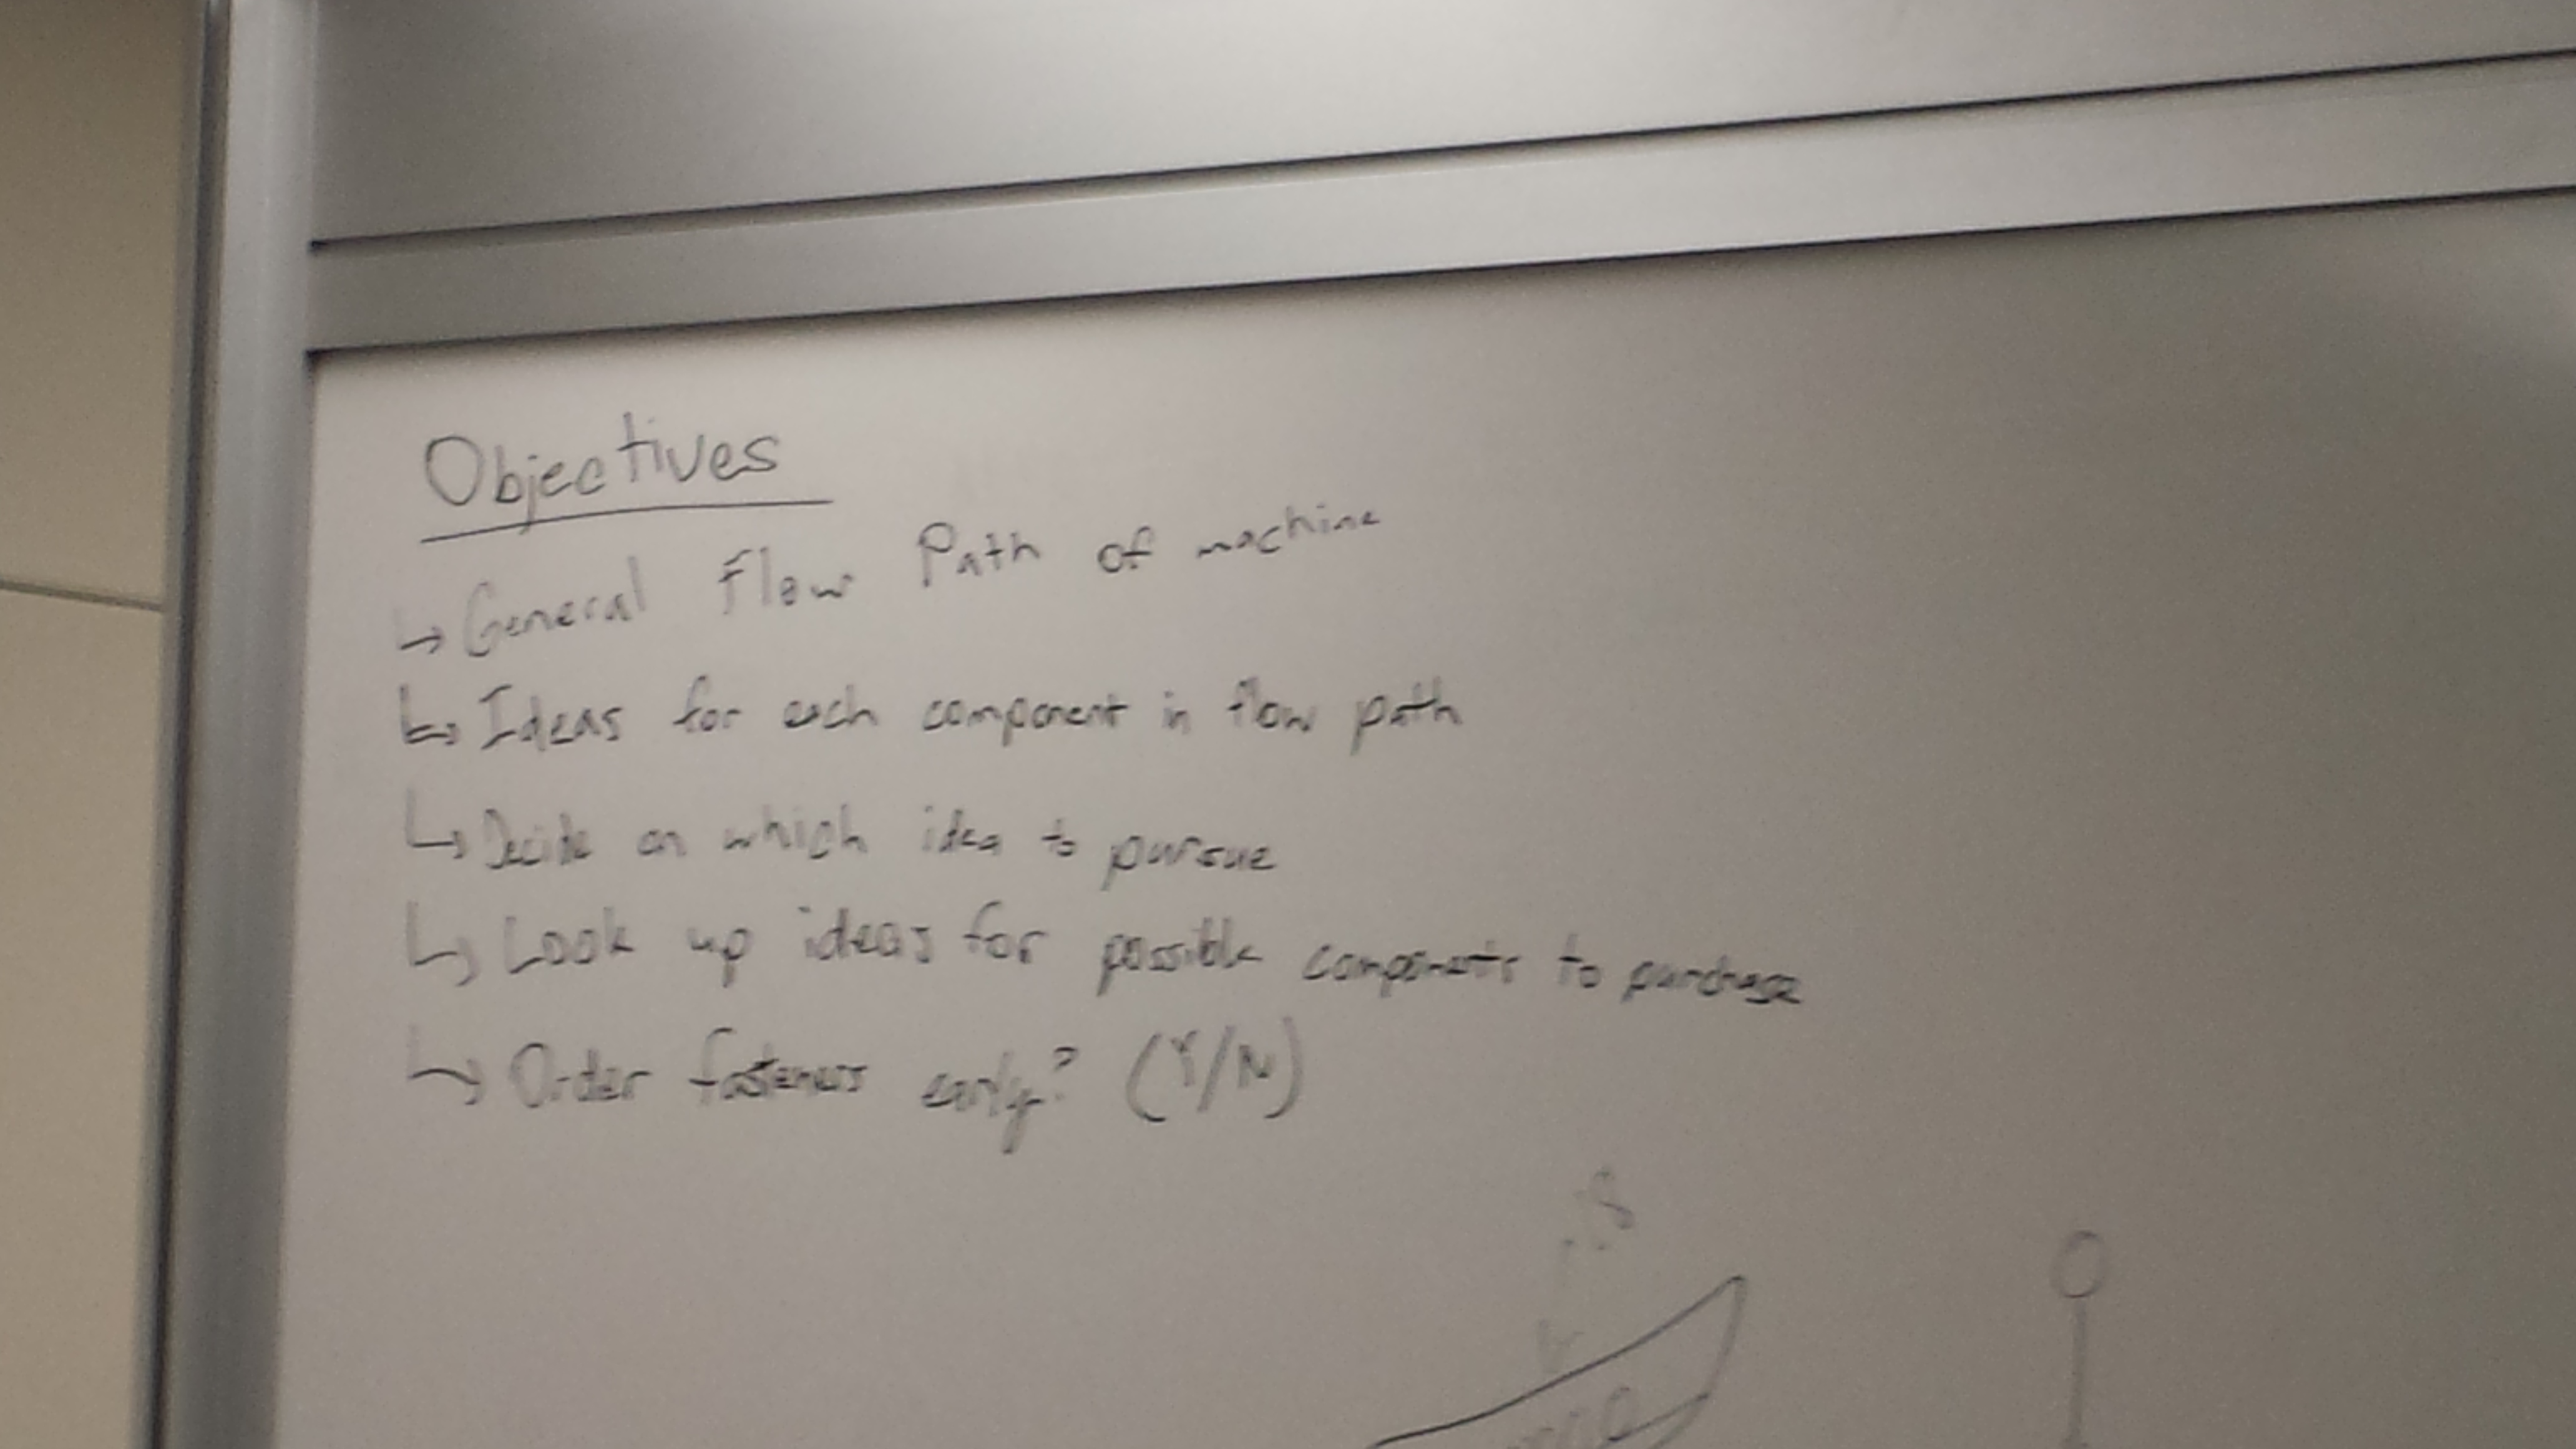 Objectives
→ General Flow Path of machine
↳ Ideas for each component in flow path
↳ Decide on which idea to pursue
↳ Look up ideas for possible components to purchase
↳ Order fasteners early? (Y/N)